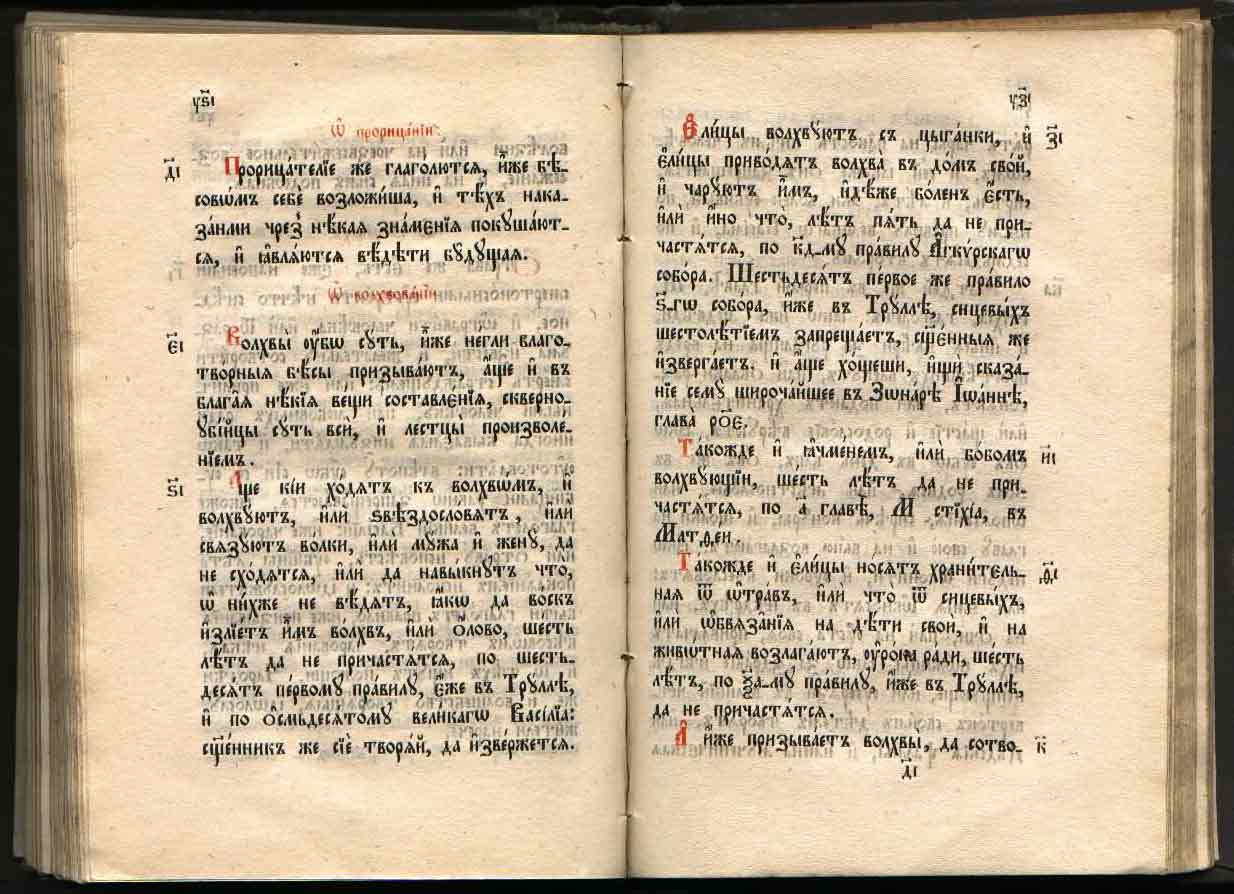 уѕ҃і
Ѿ прорица́нїи:
д҃і Прорица́телїе же глаго́лются, и҆̀же бѣ-
совѡ́мъ себѐ возложи́ша, и҆ тѣ́хъ нака-
за́нми чрез̾ нѣ̑кая зна́менїя покуша́ют-
ся, и҆ ꙗ҆вля́ются вѣ́дѣти бу́дущая.
Ѿ волхвова́нїи
є҃і Волхвы̀ ᲂу҆́бѡ су́ть, и҆̀же негли благо-
тво́рныя бѣ́сы призыва́ютъ, а҆́ще и҆ въ
блага́я нѣ́кїя ве́щи составле́нїя, скверно-
ᲂубі́йцы су́ть всѝ, и҆ лестцы̀ произволе́-
нїемъ.
ѕ҃і А҆́ще кі́и хо́дятъ къ волхвѡ́мъ, и҆
волхву́ютъ, и҆лѝ ѕвѣздосло́вятъ, и҆лѝ
свя́зуютъ во́лки, и҆лѝ му́жа и҆ жену̀, да
не схо́дятся, и҆лѝ да навы́кнутъ что̀,
ѡ҆ ни́хже не вѣ́дятъ, ꙗ҆́кѡ да во́скъ
и҆злїе́тъ и҆̀мъ во́лхвъ, и҆лѝ ѻ҆́лово, ше́сть
лѣ́тъ да не причастя́тся, по ше́сть-
деся́тъ пе́рвому пра́вилу, є҆́же въ Тру́ллѣ,
и҆ по ѻ҆смьдеся́тому вели́кагѡ Васі́лїа:
сщ҃е́нникъ же сїѐ творя́й, да и҆зве́ржется.
уз҃і
Є҆ли́цы волхву́ютъ съ цыга́нки, и҆ з҃і
є҆ли́цы приво́дятъ волхва̀ въ до́мъ сво́й,
и҆ чару́ютъ и҆̀мъ, и҆дѣ́же бо́ленъ є҆́сть,
и҆лѝ и҆́но что̀, лѣ́тъ пя́ть да не при-
частя́тся, по к҃д-му пра́вилу А҆гкѵ́рскагѡ
собо́ра. Шестьдеся́тъ пе́рвое же пра́вило
ѕ҃-гѡ собо́ра, и҆̀же въ Тру́ллѣ, сицевы́хъ
шестолѣ́тїемъ запреща́етъ, сщ҃е́нныя же
и҆зверга́етъ. и҆ а҆́ще хо́щеши, и҆щѝ сказа́-
нїе сему̀ широча́йшее въ Зѡна́рѣ І҆ѡа́ннѣ,
глава̀ ро҃є.
Та́кожде и҆ ꙗ҆чме́немъ, и҆лѝ бобо́мъ и҃і
волхву́ющїи, ше́сть лѣ́тъ да не при-
частя́тся, по а҃ главѣ̀, М стїхі́а, въ
Матѳе́и.
Та́кожде и҆ є҆ли́цы но́сятъ храни́тель- ѳ҃і
ная ѿ ѡ҆тра́въ, и҆лѝ что̀ ѿ сицевы́хъ,
и҆лѝ ѡ҆бвяза̑нїя на дѣ́ти своѝ, и҆ на
живѡ́тная возлага́ютъ, ᲂу҆ро́ка ра́ди, ше́сть
лѣ́тъ, по ѯ҃а-му пра́вилу, и҆̀же въ Тру́ллѣ,
да не причастя́тся.
А҆ и҆̀же призыва́етъ волхвы̀, да сотво- к҃
д҃і